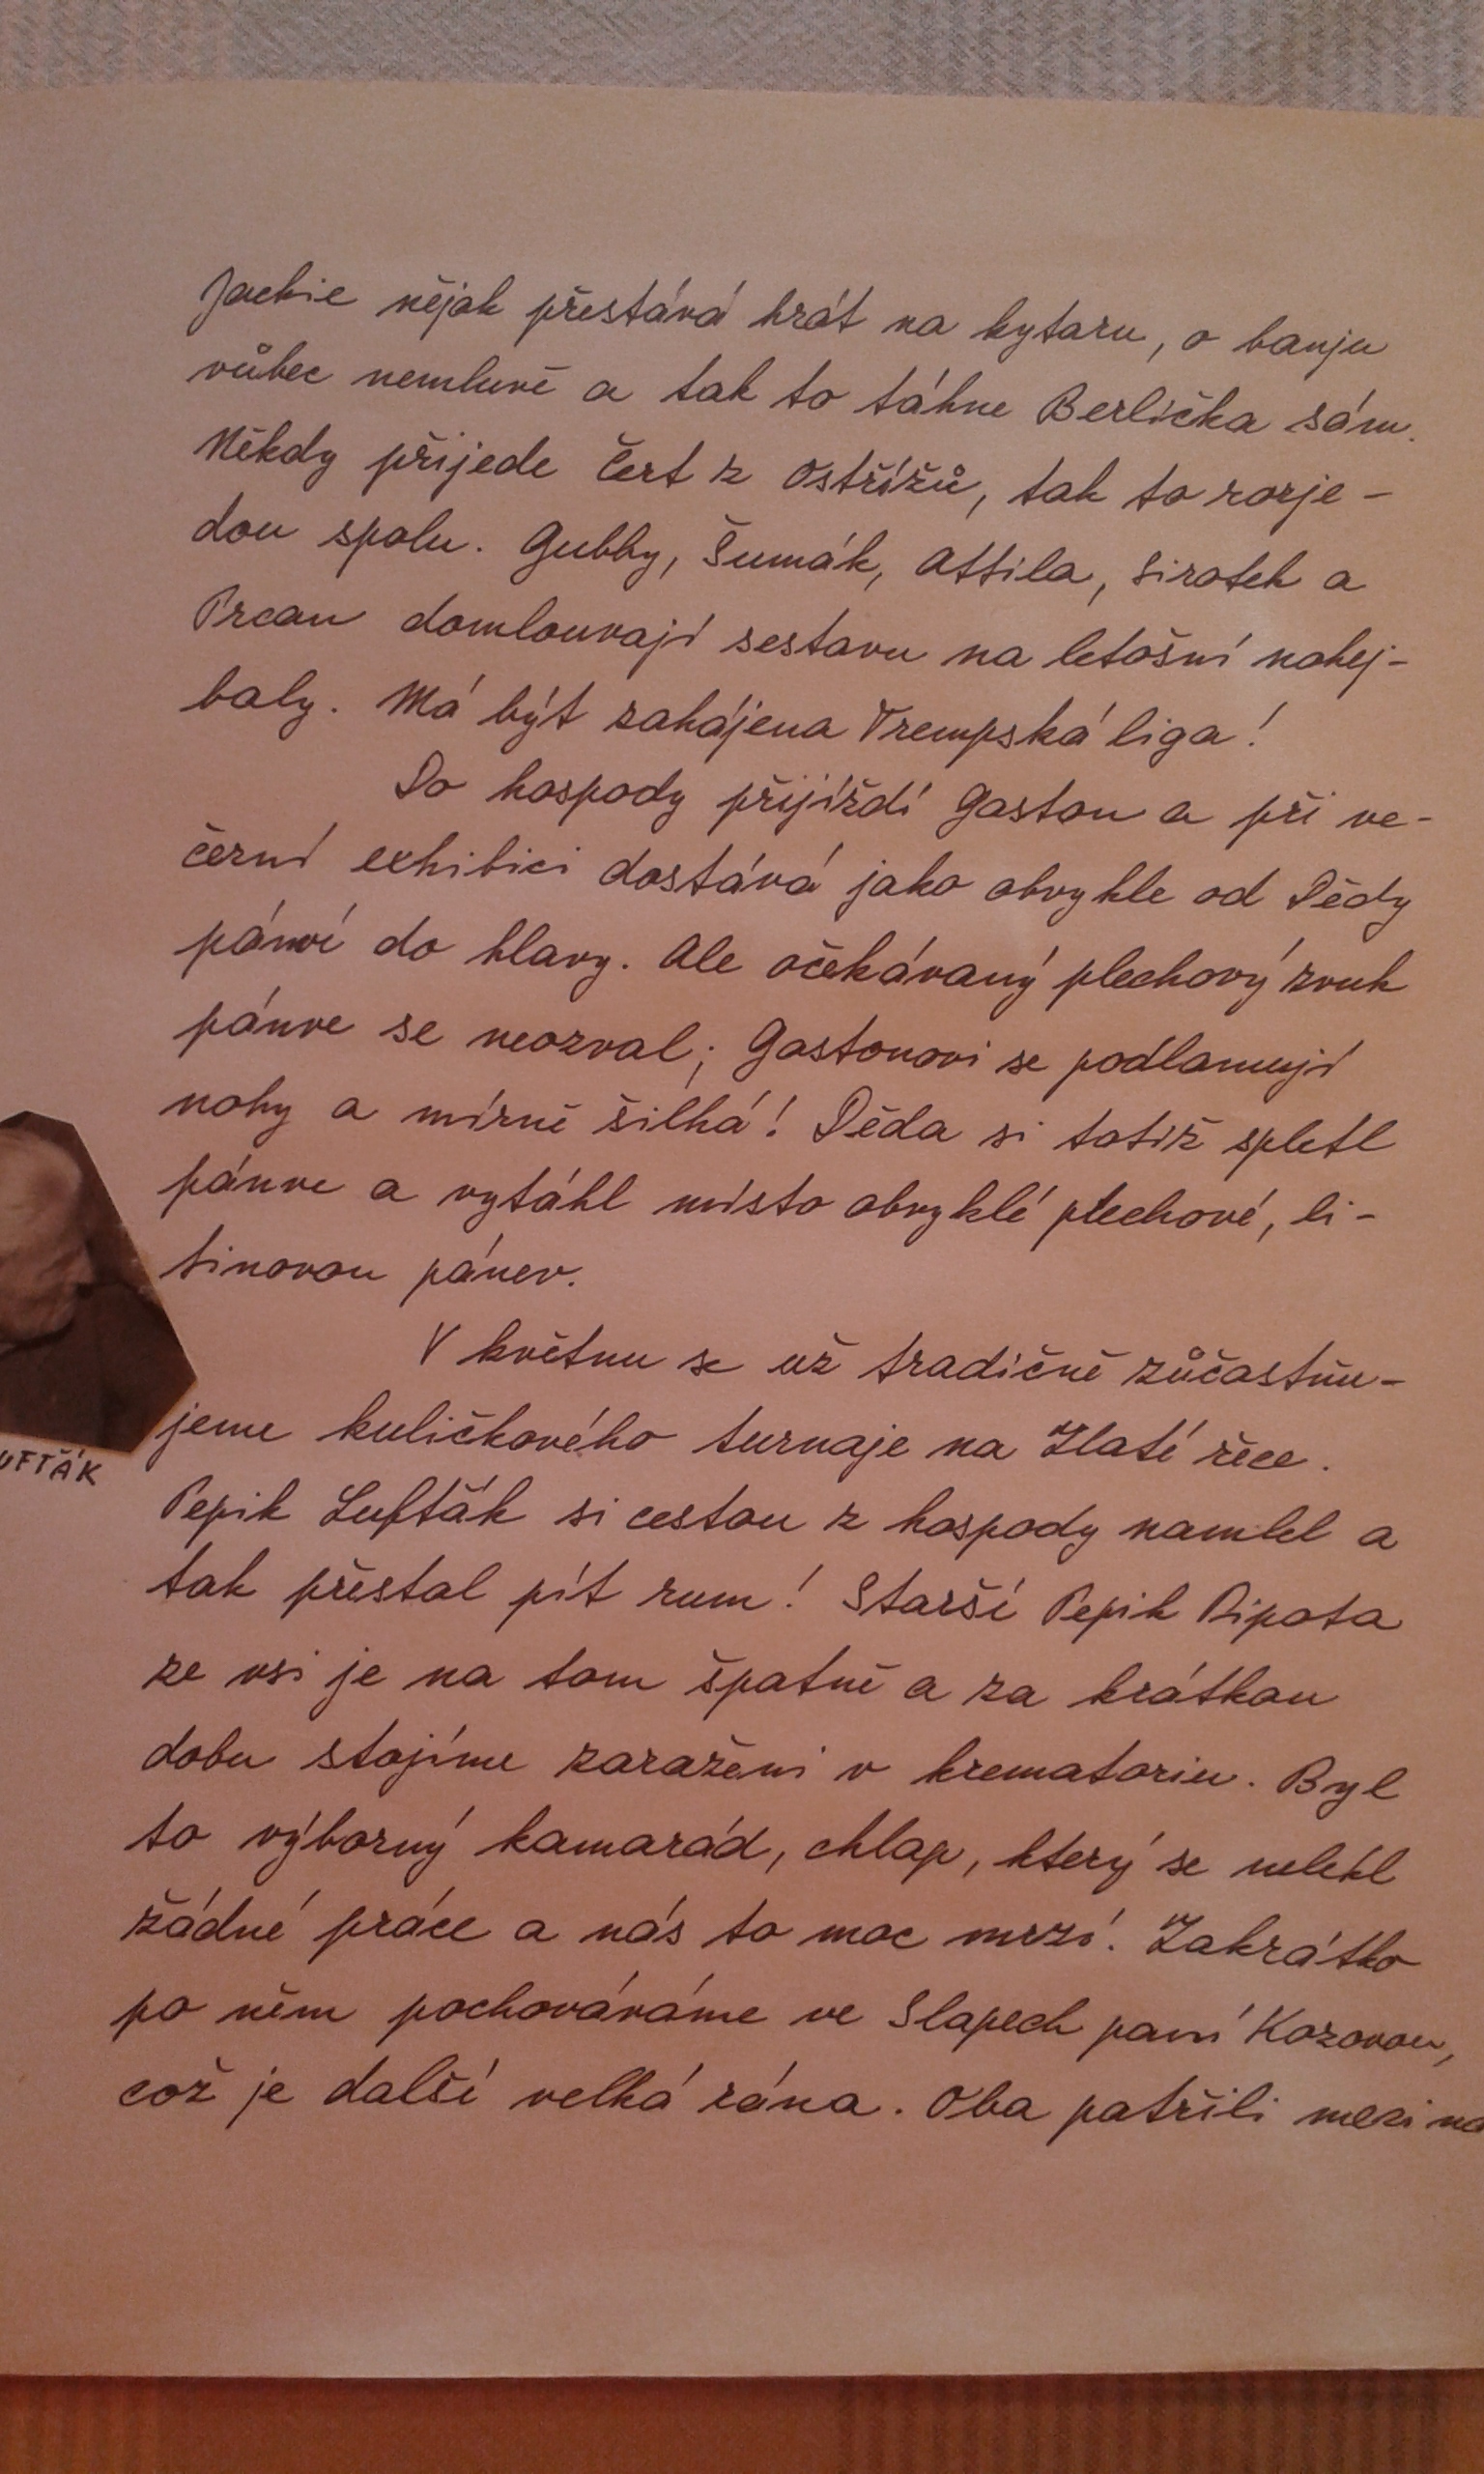 Jackie nějak přestává hrát na kytaru, o banju
vůbec nemluvě a tak to táhne Berlička sám.
Někdy přijede Čert z Ostřížů, tak to rozje-
dou spolu. Gubby, Šumák, Attila, Sirotek a
Prcan domlouvají sestavu na letošní nohej-
baly. Má být zahájena Trempská liga!
Do hospody přijíždí Gaston a při ve-
černí exhibici dostává jako obvykle od Dědy
pánví do hlavy. Ale očekávaný plechový zvuk
pánve se neozval; Gastonovi se podlamují
nohy a mírně šilhá! Děda si totiž spletl
pánve a vytáhl místo obvyklé plechové, li-
tinovou pánev.
V květnu se už tradičně zúčastňu-
jeme kuličkového turnaje na Zlaté řece.
UFŤÁK
Pepik Lufťák si cestou z hospody namlel a
tak přestal pít rum! Starší Pepik Ripota
ze vsi je na tom špatně a za krátkou
dobu stojíme zaraženi v krematoriu. Byl
to výborný kamarád, chlap, který se nelekl
žádné práce a nás to moc mrzí. Zakrátko
po něm pochováváme ve Slapech paní Kozovou,
což je další velká rána. Oba patřili mezi ná